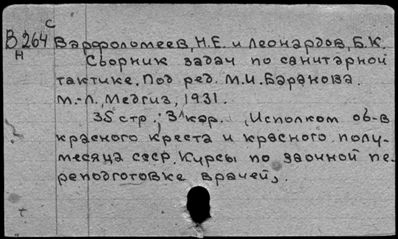 С
В 264
н
Варфоломеев, Н.Е. и Леонардов, Б.К.
Сборник задач по санитарной
тактике. Под ред. М.И. Баранова.
М.-Л., Медгиз, 1931.
35 стр., 3 кар. (Исполком об-в
красного креста и красного полу-
месяца ссср. Курсы по заочной пе-
реподготовке врачей).